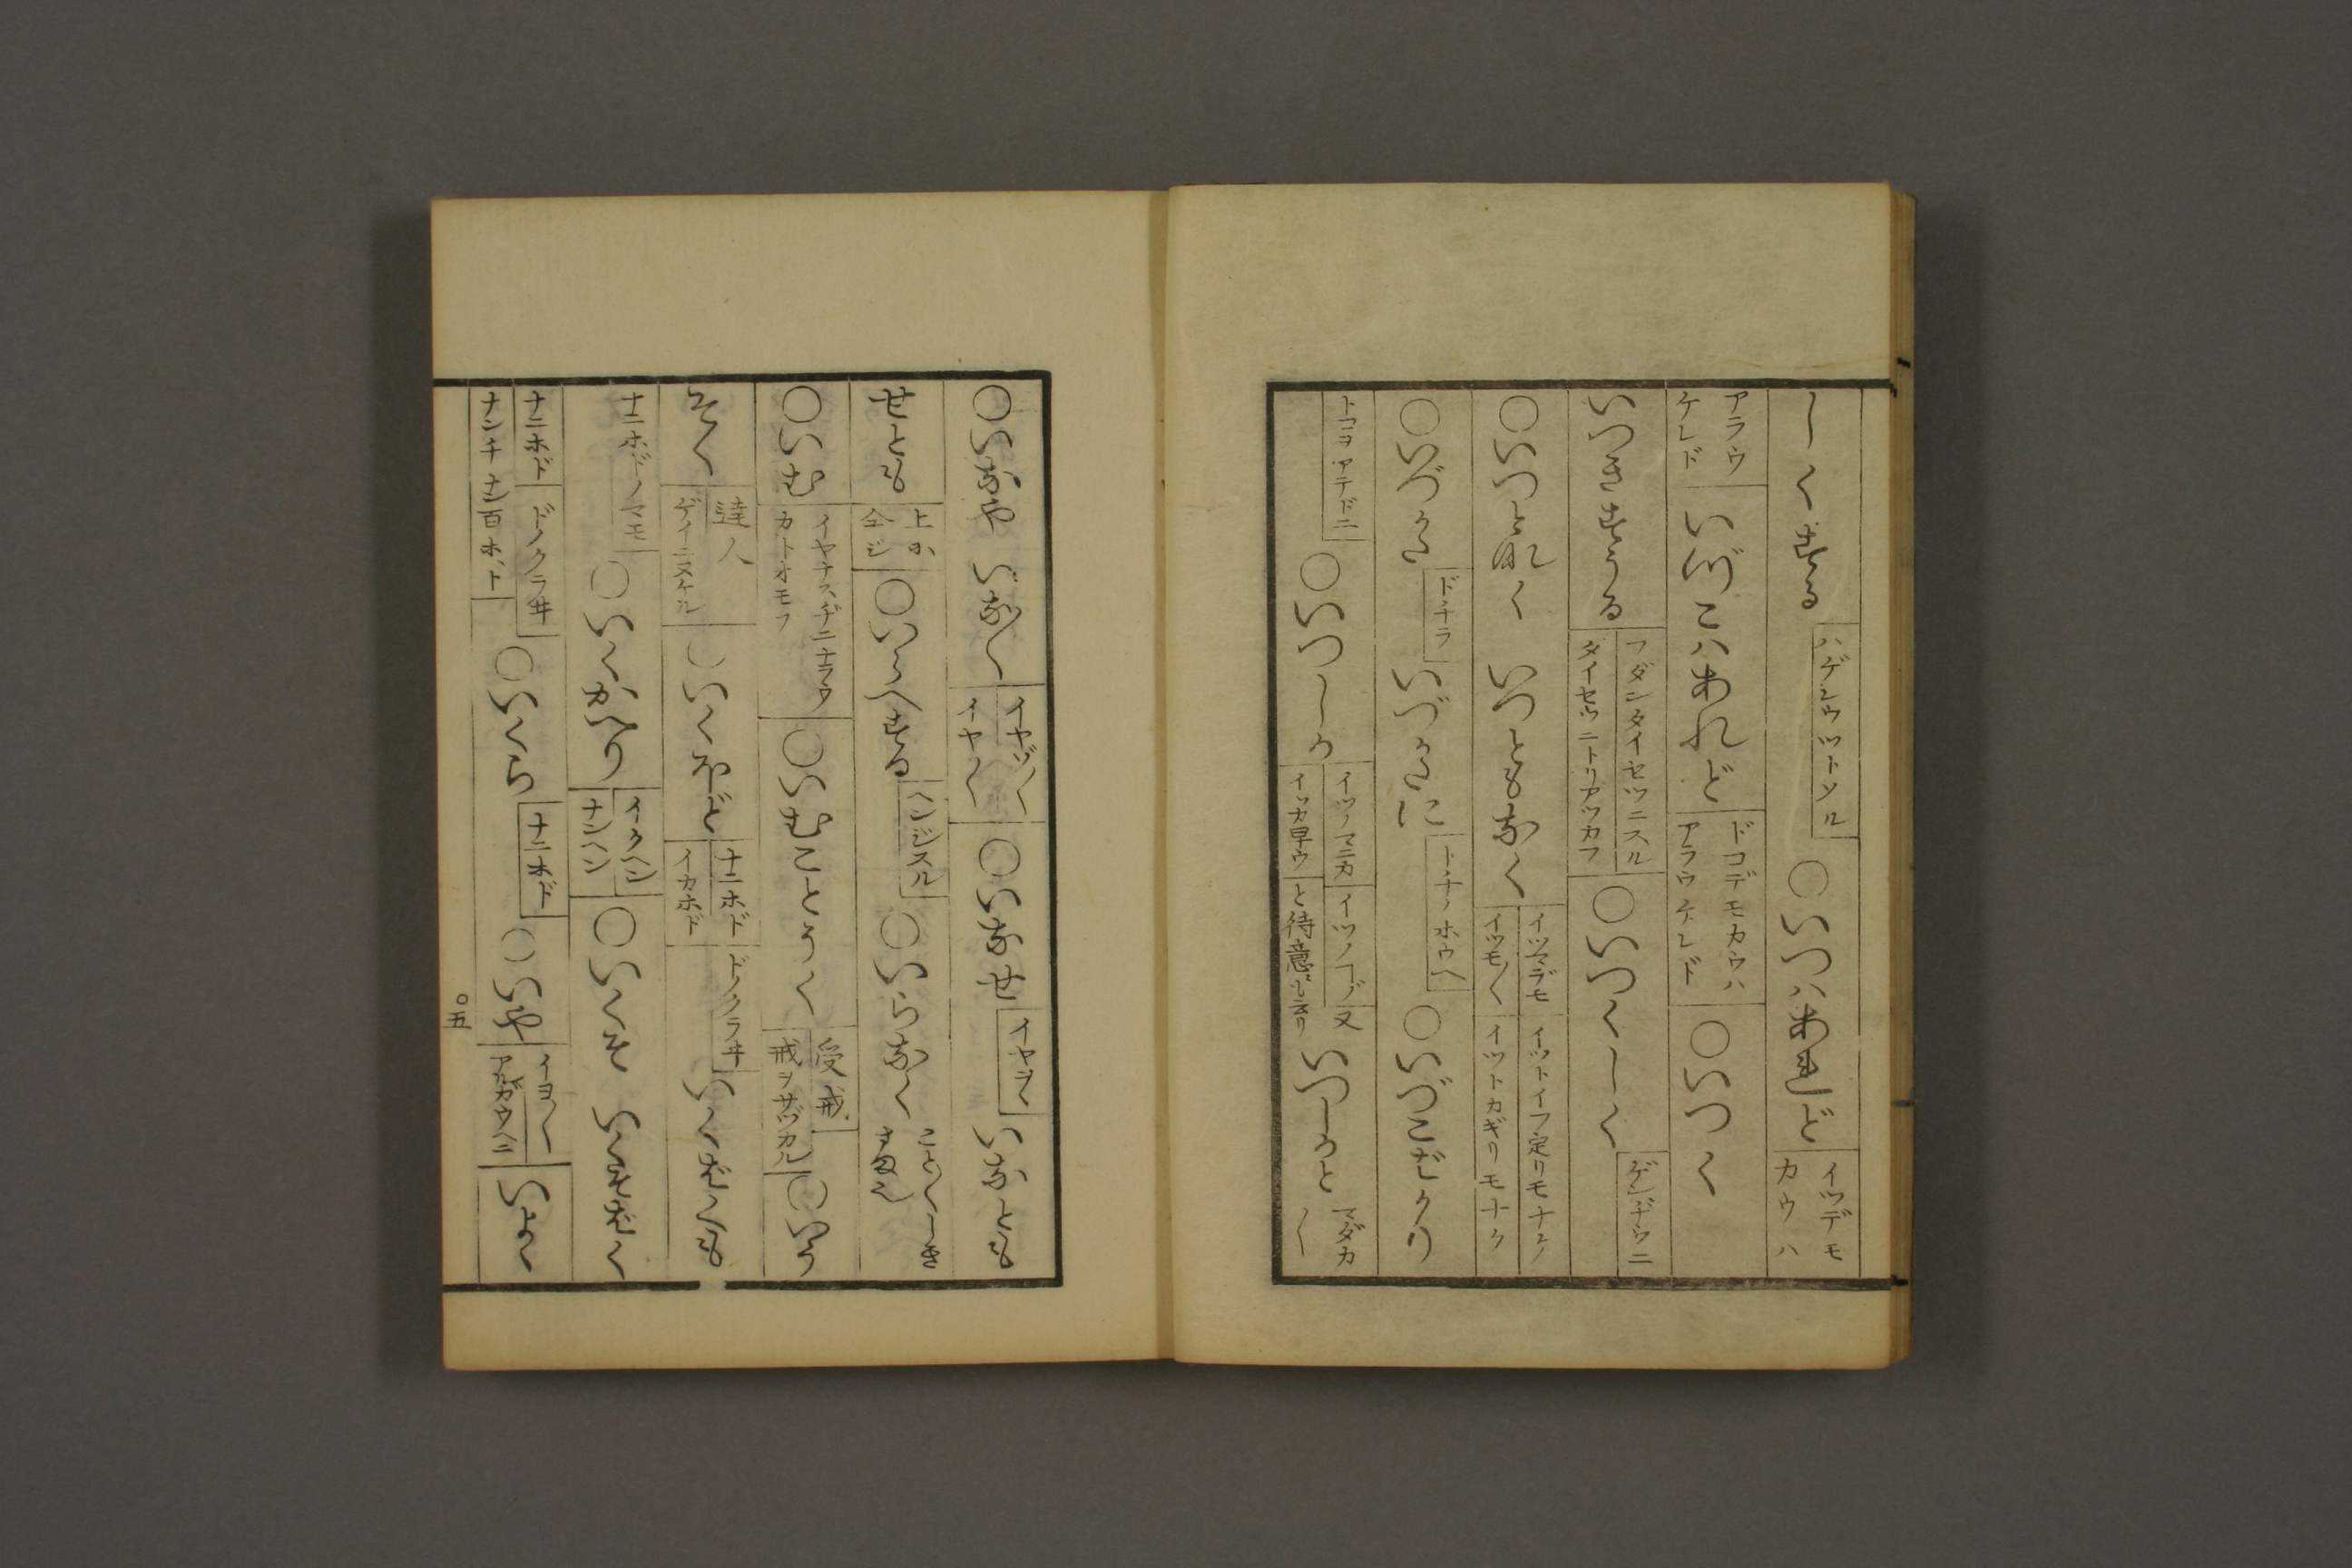 しくする ハゲシウツトメル ○いつハあれど イツデモカウハ
アラウケレド いづこハあれど ドコデモカウハアラウケレド ○いつく
いつきすうる フダンタイセツニスル タイセツニトリアツカフ ○いつくしく ゲンヂウニ
○いつとなく いつともなく イツマデモ イツモ〱 イツトイフ定リモナク イツトカギリモナク
○いづかた ドチラ いづかたに ドチノホウヘ ○いづこばかり
ドコヲアテドニ ○いつしか イツノマニカ イツカ早ウ イツノ 又 と待意 いつしかと マダカ〱
○いなや いな〱 イヤヅ〱 イヤ〱 ○いなせ イヤヲヽ いなとも
せとも 上ホ全ジ ○いらへする ヘンジスル ○いらなく こと〲しき
○いむ イヤナスヂニナラウカトオモフ ○いむことうく 受戒 戒ヲサヅカル ○いう
そく 達人 ゲイニヌケル ○いくほど ナニホド イカホド ドノクラヰ いくばくも
ナニホドノマモ ○いくかへり イクヘン ナンヘン ○いくそ いくそばく
ナニホド ドノクラヰ ナンチナン百ホド ○いくら ナニホド ○いや イヨ〱 アルガウヘニ いよ〱
○五